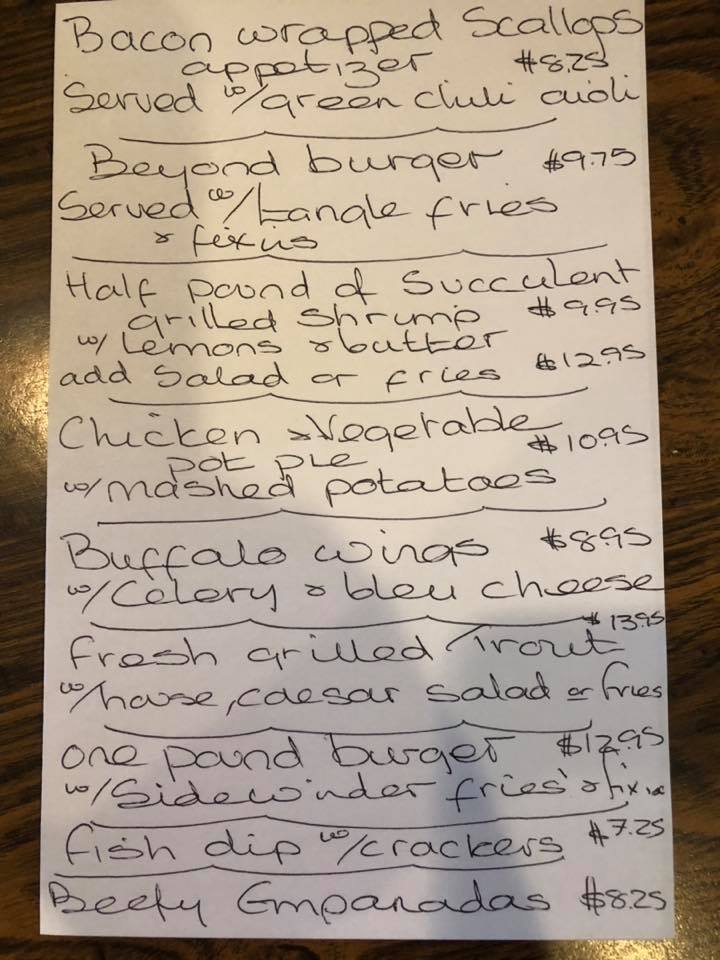 Bacon wrapped Scallops
appetizer $8.25
Served w/green chili aioli
Beyond burger $9.75
Served w/tangle fries
& fixins
Half pound of Succulent
grilled Shrimp $9.95
w/ Lemons & butter
add Salad or fries $12.95
Chicken & Vegetable
pot pie $10.95
w/mashed potatoes
Buffalo wings $8.95
w/Celery & bleu cheese
fresh grilled Trout $13.95
w/house, caesar salad or fries
one pound burger $12.95
w/Sidewinder fries & fixin
fish dip w/crackers $7.25
Beefy Empanadas $8.25